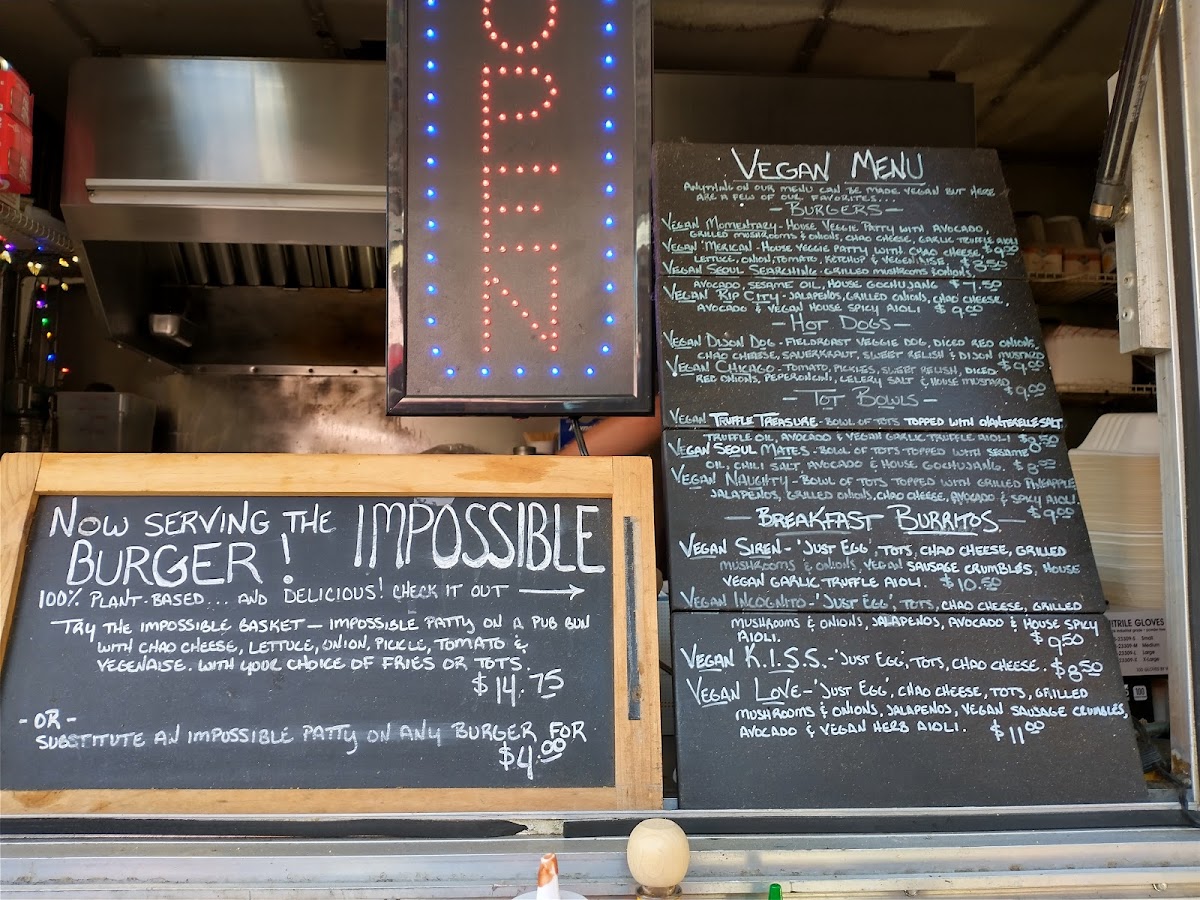 OPEN
NOW SERVING THE IMPOSSIBLE
BURGER!
100% PLANT-BASED... AND DELICIOUS! CHECK IT OUT →
TRY THE IMPOSSIBLE BASKET — IMPOSSIBLE PATTY ON A PUB BUN
WITH CHAO CHEESE, LETTUCE, ONION, PICKLE, TOMATO &
VEGENAISE. WITH YOUR CHOICE OF FRIES OR TOTS.
$14.75
- OR -
SUBSTITUTE AN IMPOSSIBLE PATTY ON ANY BURGER FOR
$4.00
VEGAN MENU
ANYTHING ON OUR MENU CAN BE MADE VEGAN BUT HERE
ARE A FEW OF OUR FAVORITES...
- BURGERS -
VEGAN MOMENTARY - HOUSE VEGGIE PATTY WITH AVOCADO,
GRILLED MUSHROOMS & ONIONS, CHAO CHEESE, GARLIC TRUFFLE AIOLI
VEGAN 'MERICAN - HOUSE VEGGIE PATTY WITH CHAO CHEESE, $9.50
LETTUCE, ONION, TOMATO, KETCHUP & VEGENAISE. $8.50
VEGAN SEOUL SEARCHING - GRILLED MUSHROOMS & ONIONS,
AVOCADO, SESAME OIL, HOUSE GOCHUJANG $7.50
VEGAN RIP CITY - JALAPENOS, GRILLED ONIONS, CHAO CHEESE,
AVOCADO & VEGAN HOUSE SPICY AIOLI $9.00
- HOT DOGS -
VEGAN DIJON DOG - FIELDROAST VEGGIE DOG, DICED RED ONIONS,
CHAO CHEESE, SAUERKRAUT, SWEET RELISH & DIJON MUSTARD
VEGAN CHICAGO - TOMATO, PICKLES, SWEET RELISH, DICED $9.00
RED ONIONS, PEPERONCINI, CELERY SALT & HOUSE MUSTARD
$9.00
- TOT BOWLS -
VEGAN TRUFFLE TREASURE - BOWL OF TOTS TOPPED WITH CHANTERELLE SALT,
TRUFFLE OIL, AVOCADO & VEGAN GARLIC TRUFFLE AIOLI $8.50
VEGAN SEOUL MATES - BOWL OF TOTS TOPPED WITH SESAME
OIL, CHILI SALT, AVOCADO & HOUSE GOCHUJANG.
VEGAN NAUGHTY - BOWL OF TOTS TOPPED WITH GRILLED PINEAPPLE
JALAPENOS, GRILLED ONIONS, CHAO CHEESE, AVOCADO & SPICY AIOLI
$9.00
— BREAKFAST BURRITOS —
VEGAN SIREN - 'JUST EGG', TOTS, CHAO CHEESE, GRILLED
MUSHROOMS & ONIONS, VEGAN SAUSAGE CRUMBLES, HOUSE
VEGAN GARLIC TRUFFLE AIOLI. $10.50
VEGAN INCOGNITO - 'JUST EGG', TOTS, CHAO CHEESE, GRILLED
MUSHROOMS & ONIONS, JALAPENOS, AVOCADO & HOUSE SPICY
AIOLI. $9.50
VEGAN K.I.S.S. - 'JUST EGG', TOTS, CHAO CHEESE. $8.50
VEGAN LOVE - 'JUST EGG', CHAO CHEESE, TOTS, GRILLED
MUSHROOMS & ONIONS, JALAPENOS, VEGAN SAUSAGE CRUMBLES,
AVOCADO & VEGAN HERB AIOLI. $11.00
NITRILE GLOVES
Small
Medium
Large
X-Large
100